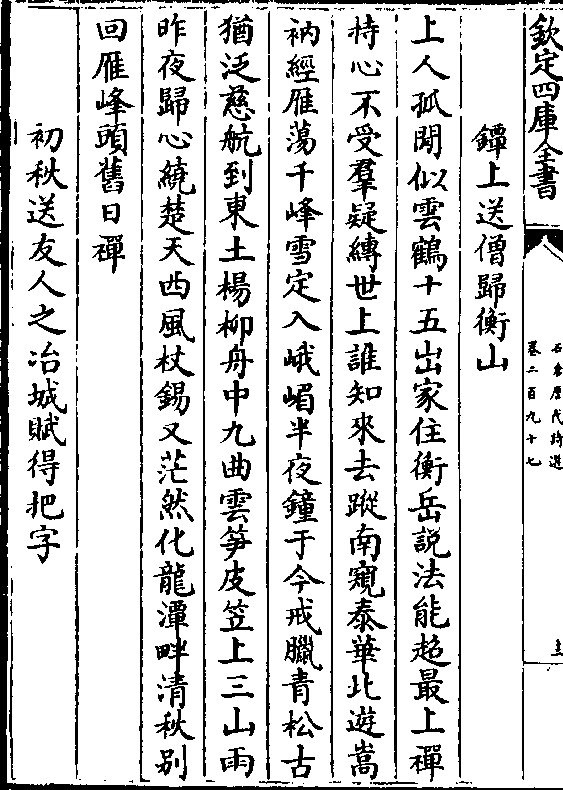 欽定四庫全書
石倉歷代詩選
卷二百九十七
鐔上送僧歸衡山
上人孤閒似雲鶴十五出家住衡岳説法能超最上禪
持心不受羣疑縛世上誰知來去蹤南窺泰華北遊嵩
衲經雁蕩千峰雪定入峨嵋半夜鐘于今戒臘青松古
猶泛慈航到東土楊柳舟中九曲雲笋皮笠上三山雨
昨夜歸心繞楚天西風杖錫又茫然化龍潭畔清秋别
回雁峰頭舊日禪
初秋送友人之冶城賦得把字